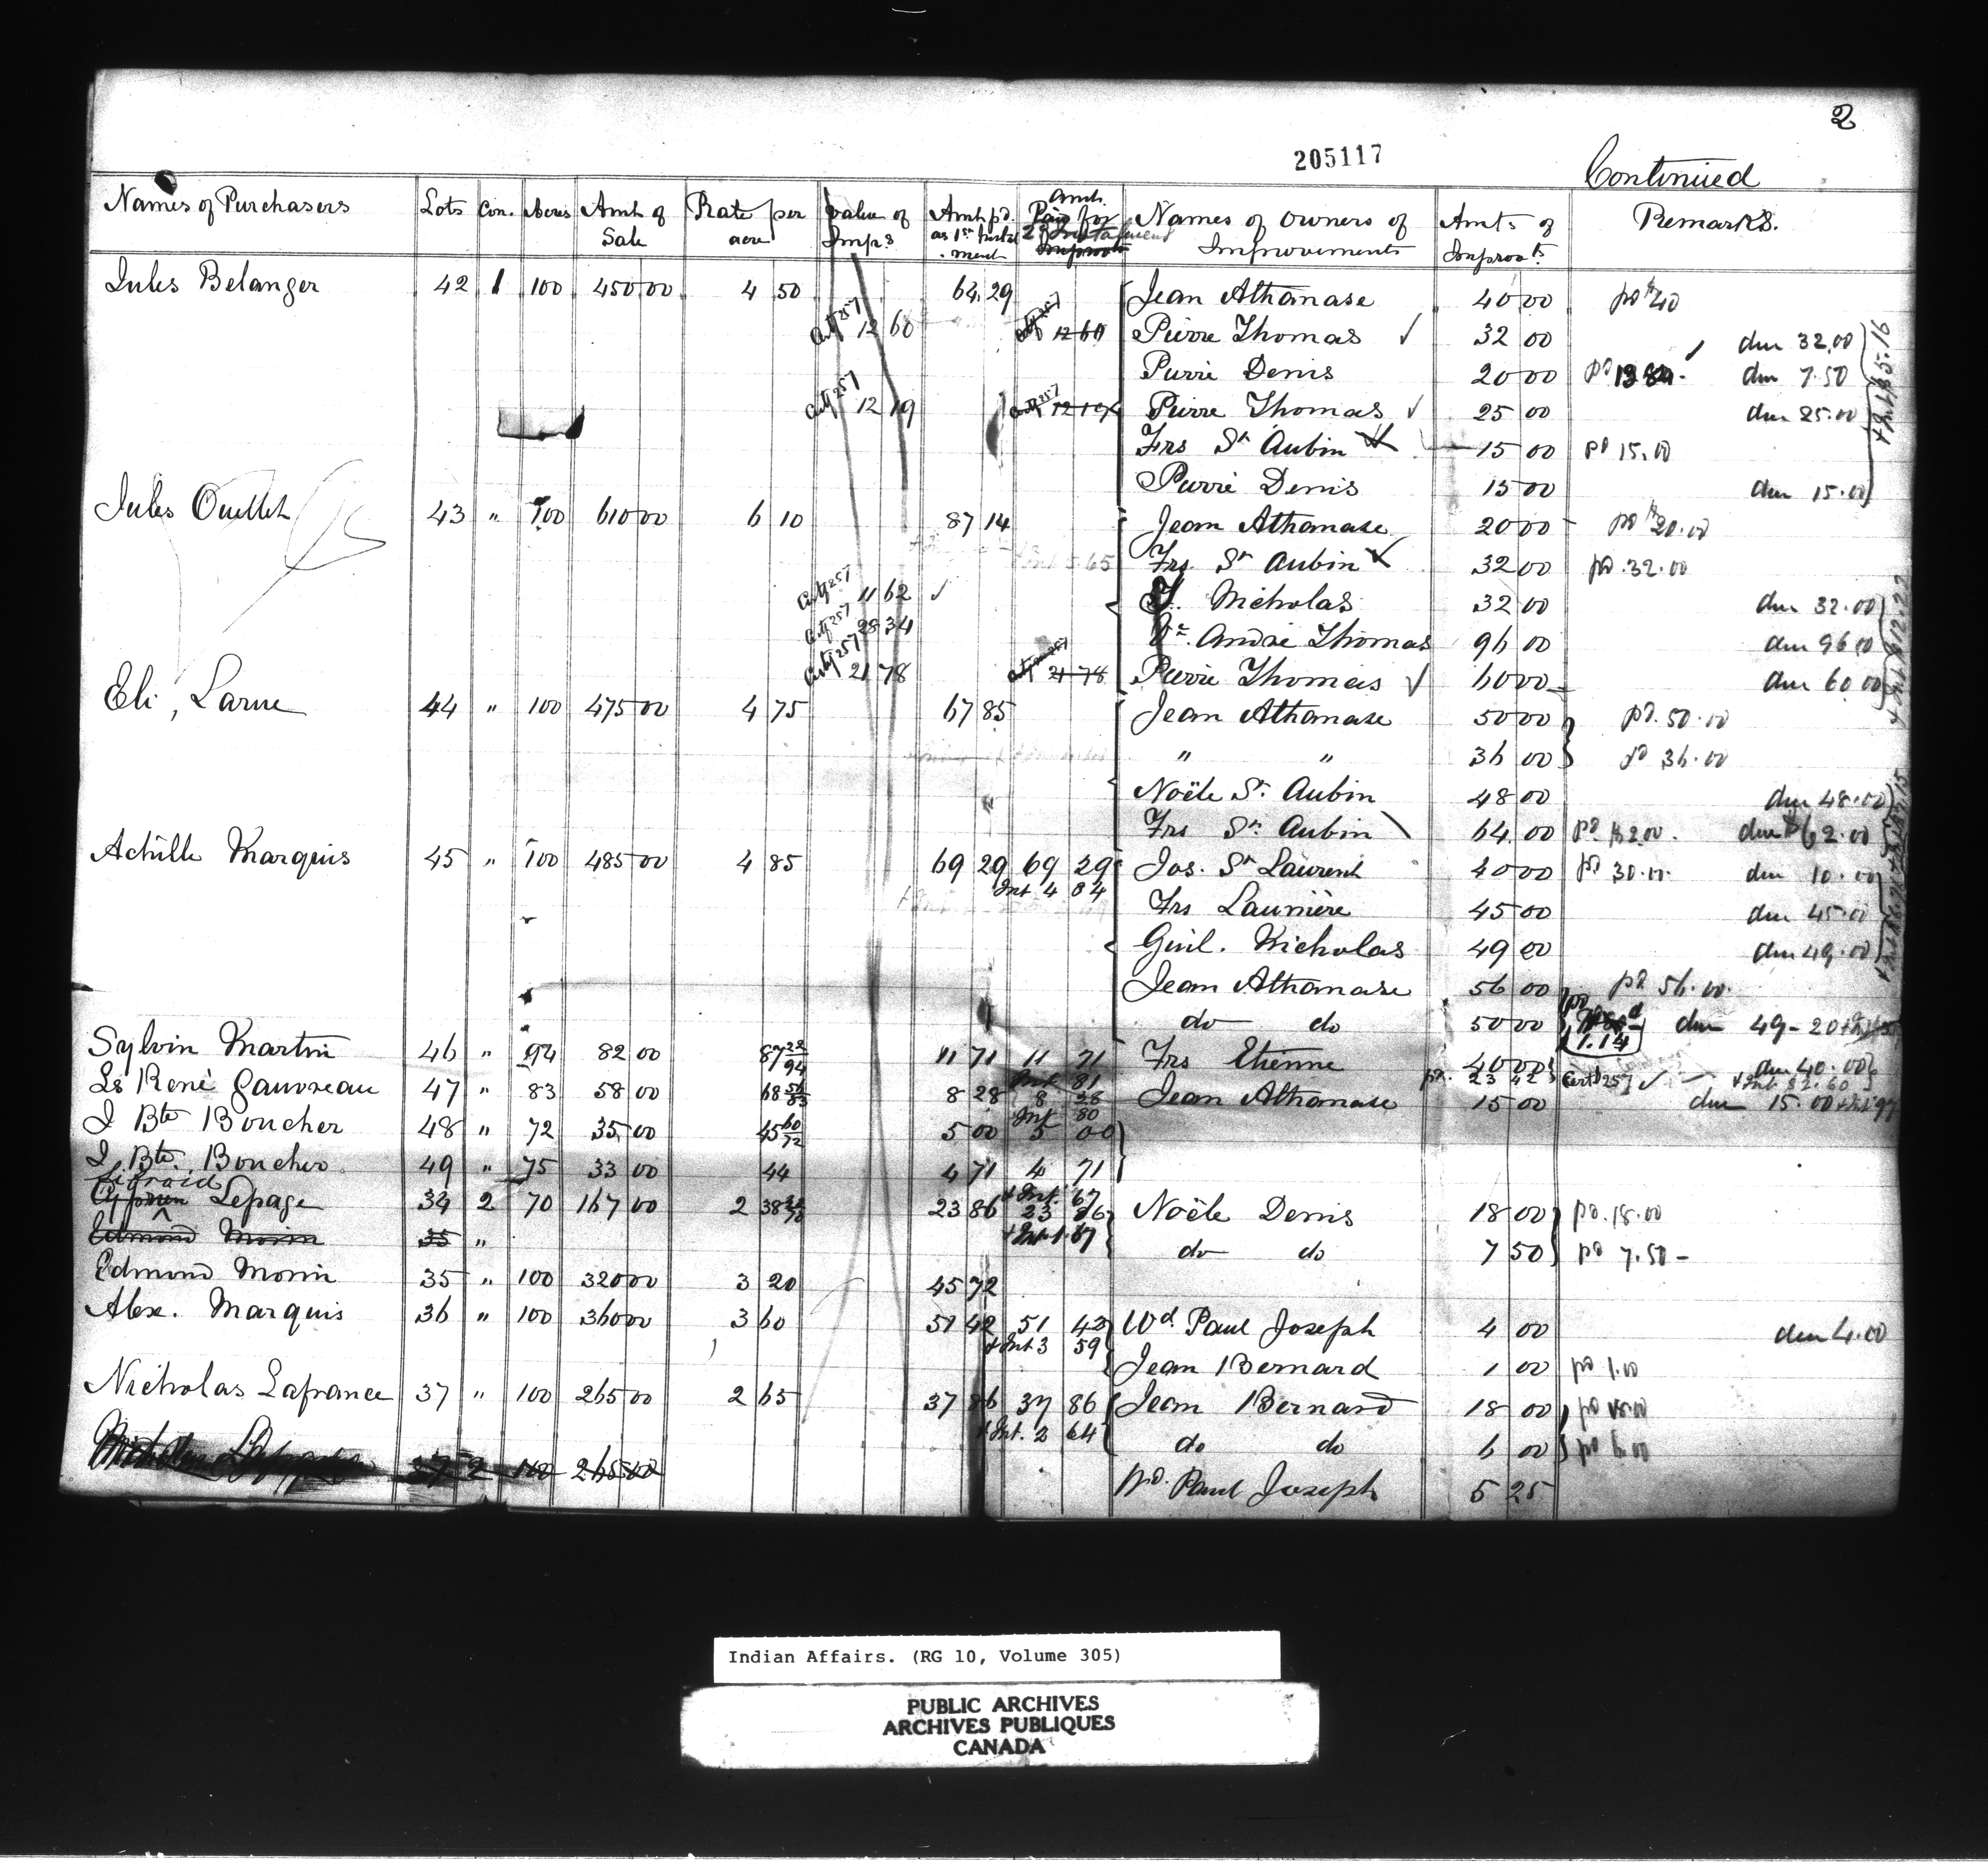 2
205117
Continued
Names of Purchasers Lots Con. Acres Amt of Sale Rate per acre Value of Imps Amt pd. as 1st Instalment Amt. Paid for 2d Instalment Improvts Names of Owners of Improvements Amts of Improvts. Remarks.
Jules Belanger 42 1 100 450 00 4 50 64.29 Jean Athanase 40 00 pd $40
Certf 257 12 60 Certf 257 12 60 Pierre Thomas ✓ 32 00 due 32.00
Pierre Denis 20 00 pd due 7.50
Certf 257 12 19 Certf 257 12 19 Pierre Thomas ✓ 25 00 due 25.00
Frs St Aubin 15 00 pd 15.00
Pierre Denis 15 00 due 15.00
Jules Ouellet 43 " 100 610 00 6 10 87 14 Jean Athanase 20 00 pd $20.00
Frs. St Aubin 32 00 pd. 32.00
Certf 257 11 62 ✓ Nicholas 32 00 due 32.00
Certf 257 28 34 Ve. André Thomas 96 00 due 96.00
Certf 257 21 78 21 78 Pierre Thomas ✓ 60 00 due 60.00
Eli, Larue 44 " 100 475 00 4 75 67 85 Jean Athanase 50 00 pd. 50.00
" " 36 00 pd 36.00
Noële St. Aubin 48 00 due 48.00
Frs St. Aubin 64.00 pd 2.00. due 62.00
Achille Marquis 45 " 100 485 00 4 85 69 29 69 29 Jos. St Laurent 40 00 pd 30.00 due 10.00
Int 4 84 Frs Laumière 45 00 due 45.00
Guil. Nicholas 49 00 due 49.00
Jean Athanase 56 00 pd 56.00.
do do 50 00 pd 1.14 due 49-20
Sylvin Martin 46 " 94 82 00 87 22/94 11 71 11 71 Frs Etienne 40 00 due 40.00
Int 81 pd. 23 42 Certf 257 ✓ + Int $2.60
Ls René Gauvreau 47 " 83 58 00 68 56/83 8 28 8 28 Jean Athanase 15 00 due 15.00 + Int 97
Int 80
J Bte Boucher 48 " 72 35 00 45 60/72 5 00 5 00
J. Bte. Boucher 49 " 75 33 00 44 4 71 4 71
+ Int. 67
Lepage 34 2 70 167 00 2 38 23 86 23 86 Noële Denis 18 00 pd. 18.00
Edmond Morin 35 " + Int 1.67 do do 7 50 pd 7.50 -
Edmond Morin 35 " 100 320 00 3 20 45 72
Alex. Marquis 36 " 100 360 00 3 60 51 42 51 43 Wd. Paul Joseph 4 00 due 4.00
+ Int 3 59 Jean Bernard 1 00 pd 1.00
Nicholas Lafrance 37 " 100 265 00 2 65 37 86 37 86 Jean Bernard 18 00 pd 18.00
+ Int. 2 64 do do 6 00 pd 6.00
37 2 100 265 00 Wd. Paul Joseph 5 25
Indian Affairs. (RG 10, Volume 305)
PUBLIC ARCHIVES
ARCHIVES PUBLIQUES
CANADA